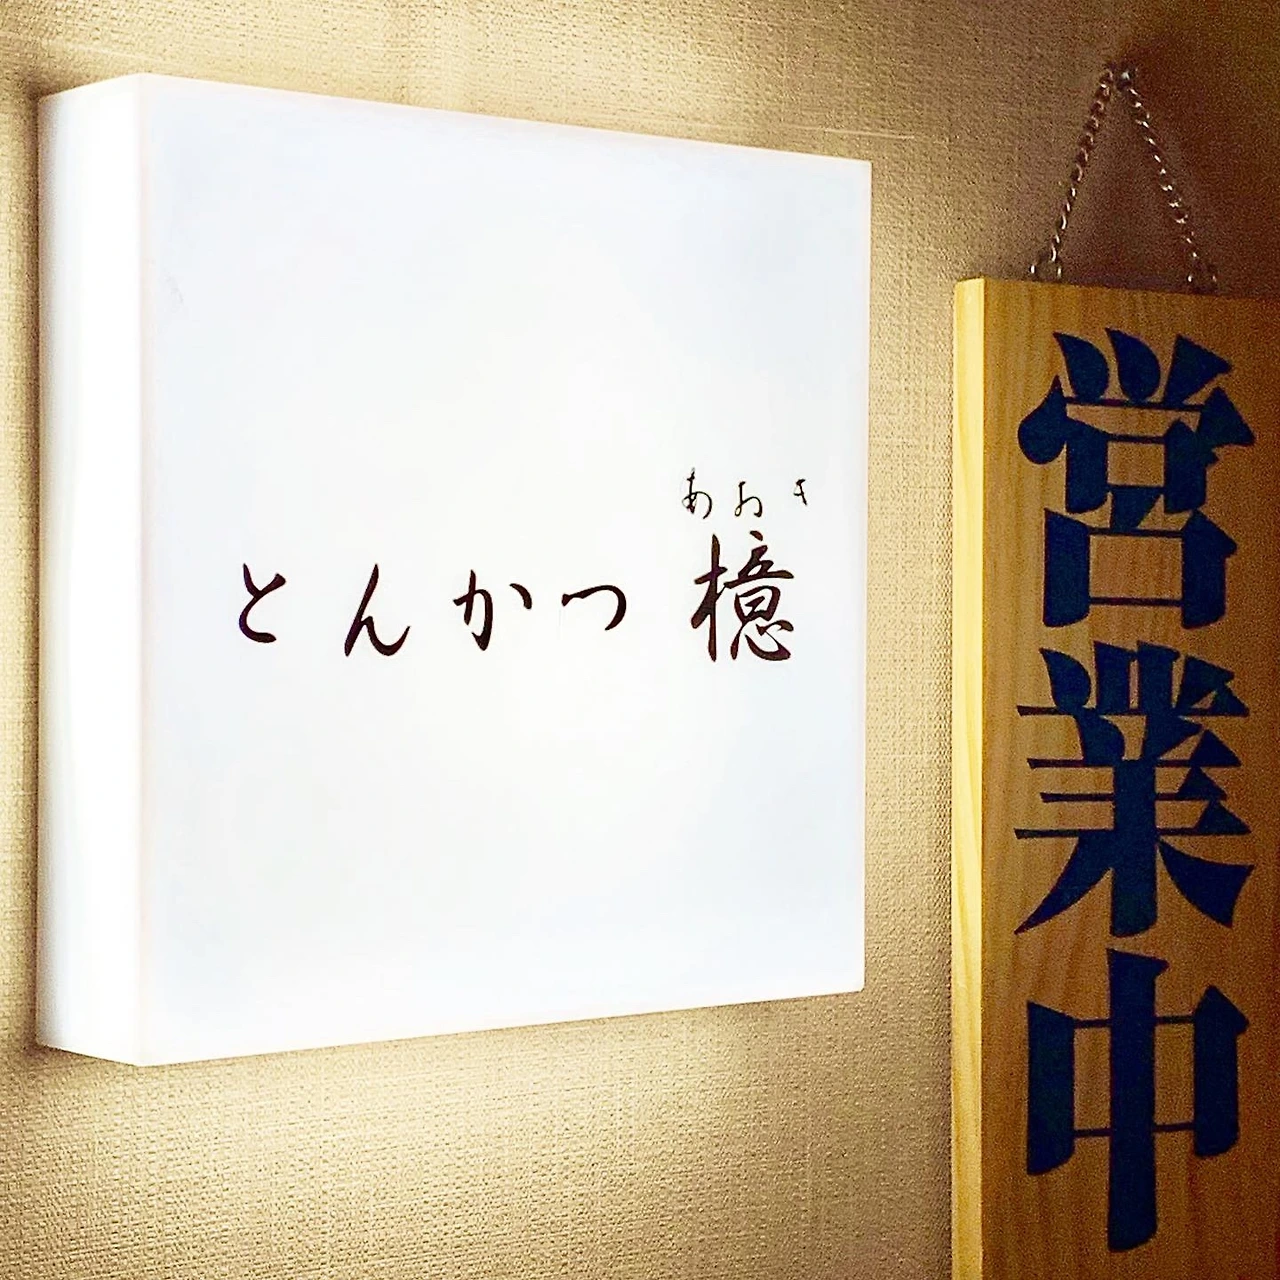 あおき
とんかつ 檍
営業中